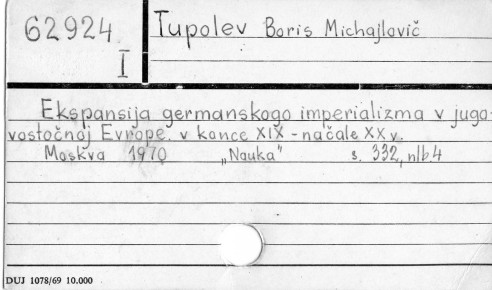 62924
I
Tupolev Boris Michajlovič
Ekspansija germanskogo imperializma v jugo-
vostočnoj Evrope v konce XIX - načale XX v.
Moskva 1970 „Nauka" s. 332, nlb.4
DUJ 1078/69 10.000